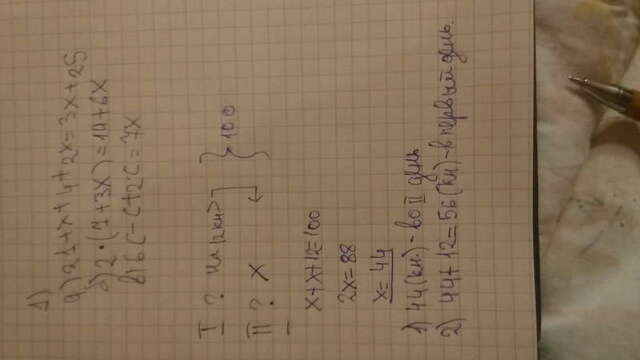 1)
а) 21+x+4+2x=3x+25
б) 2·(7+3x)=14+6x
в) 6c-c+2·c=7x
I ? на 12кн> } 100
II ? x
x+x+12=100
2x=88
x=44
1) 44(кн.)-во II день
2) 44+12=56(кн)-в первый день.